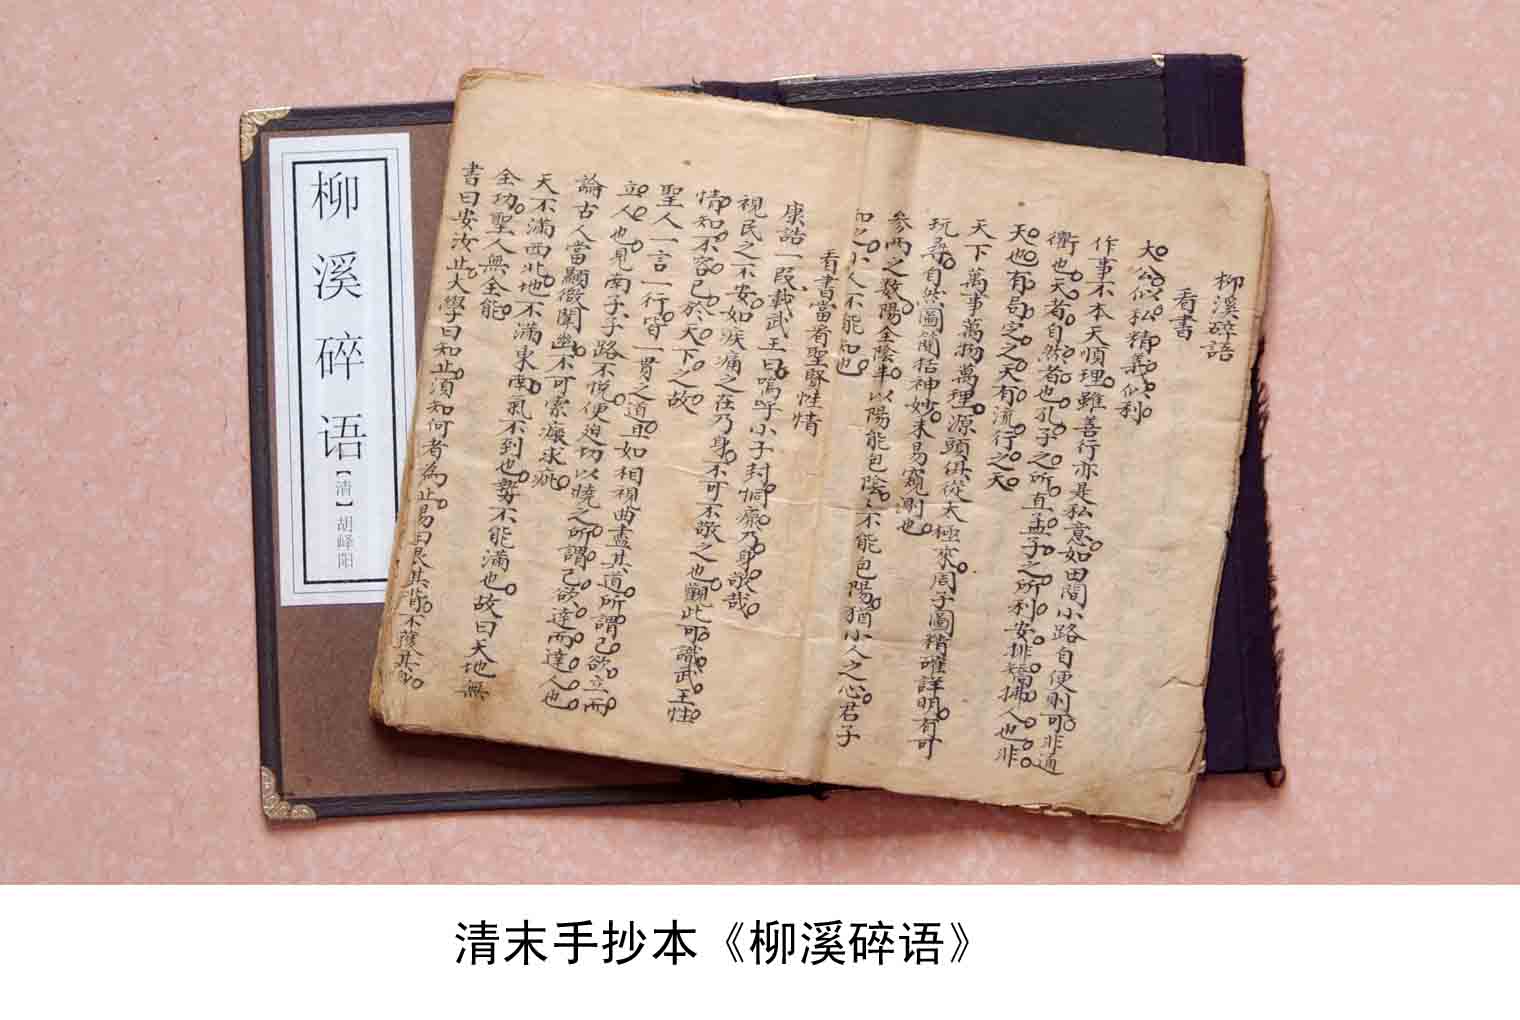 柳溪碎语
【清】胡峄阳
柳溪碎語
看書
大公似私精義似利
作事不本天順理雖善行亦是私意如田間小路自便則可非通
衢也天者自然者也孔子之所直孟子之所利安排矯拂人也非
天也有局定之天有流行之天
天下萬事萬物萬理源頭俱從太極來周子圖精確詳明有可
玩尋自然圖簡括神妙未易窺測也
參兩之数陽全陰半以陽能包陰陰不能包陽猶小人之心君子
知之小人不能知也
看書當看聖賢性情
康誥一段載武王曰嗚呼小子封恫瘝乃身敬哉
視民之不安如疾痛之在乃身不可不敬之也觀此可識武王性
情知不容已於天下之故
聖人一言一行皆一貫之道且如相視曲盡其道所謂己欲立而
立人也見南子子路不悦便廹切以曉之所謂己欲達而達人也
論古人當顯微闡幽不可索瘢求疵
天不滿西北地不滿東南氣不到也勢不能滿也故曰天地無
全功聖人無全能
書曰安汝止大學曰知止須知何者為止易曰艮其背不獲其身
清末手抄本《柳溪碎语》